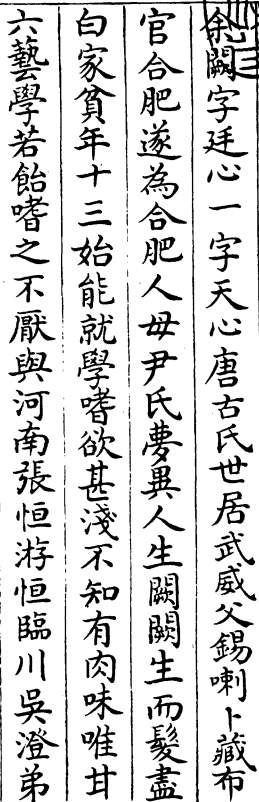 余闕字廷心一字天心唐古氏世居武威父錫喇卜藏布
官合肥遂為合肥人母尹氏夢異人生闕闕生而髮盡
白家貧年十三始能就學嗜欲甚淺不知有肉味唯甘
六藝學若飴嗜之不厭與河南張恒游恒臨川吳澄弟